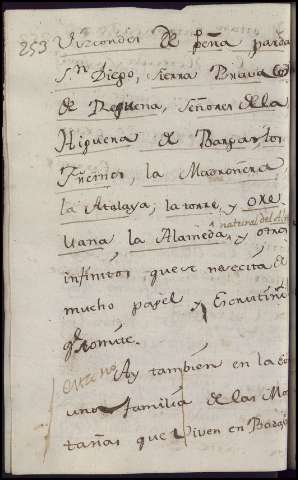 253 Vizcondes de peña parda
Sn Diego, sierra Brava
de Requena, Señores de la
Higuera de Bargas, los
la Madroñera,
la Atalaya, la torre, y ore
llana la Alameda, y otros
natural del
infinitos que se necesita de
mucho papel y Escrutiño
omite.
Ay tambien en la
una familia de las Mo
tañas que Viven en Barg